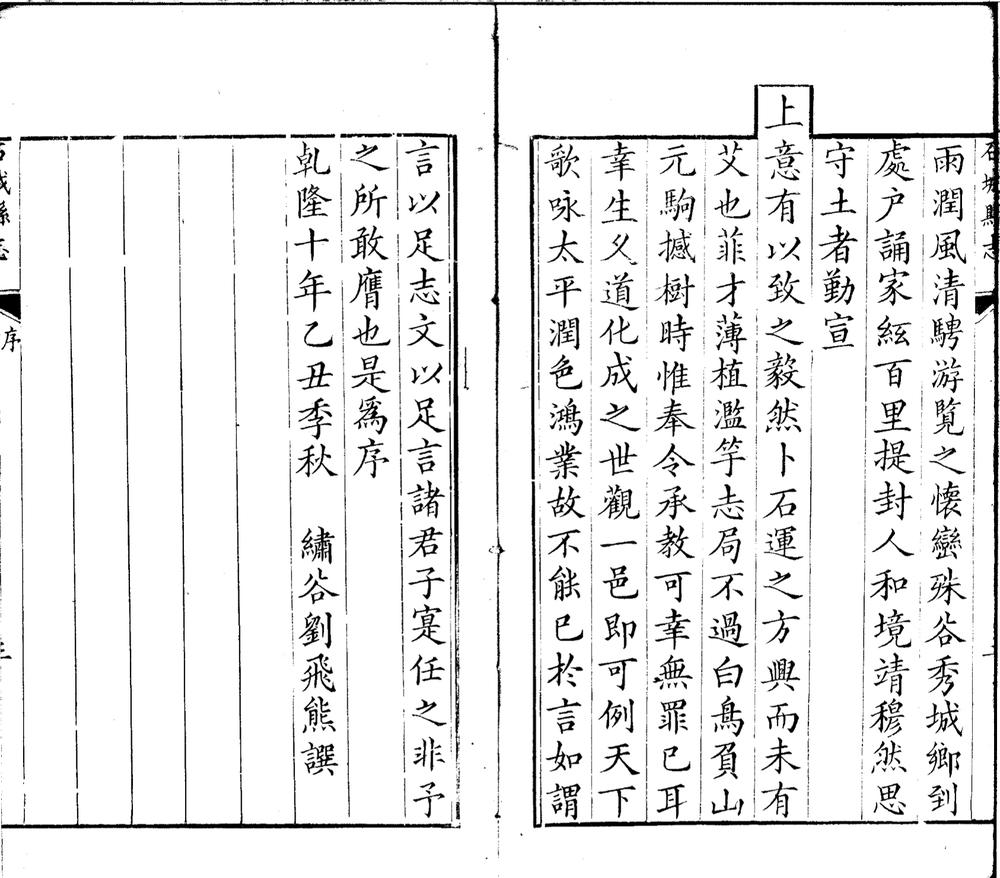 石城縣志
雨潤風清騁游覽之懷巒殊谷秀城鄉到
處户誦家絃百里提封人和境靖穆然思
守土者勤宣
上意有以致之毅然卜石運之方興而未有
艾也菲才薄植濫竽志局不過白鳥負山
元駒撼樹時惟奉令承教可幸無罪已耳
幸生久道化成之世觀一邑即可例天下
歌咏太平潤色鴻業故不能已於言如謂
言以足志文以足言諸君子寔任之非予
之所敢膺也是爲序
乹隆十年乙丑季秋　繡谷劉飛熊譔
石城縣志
序